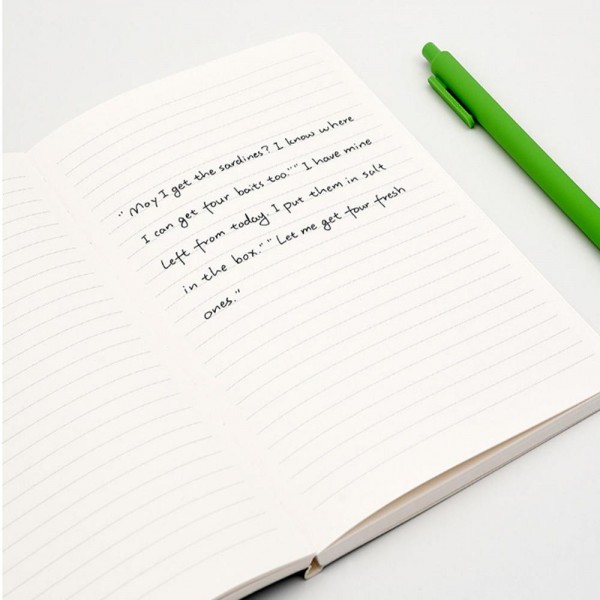 "May I get the sardines? I know where
I can get four baits too." "I have mine
Left from today. I put them in salt
in the box." "Let me get four fresh
ones."